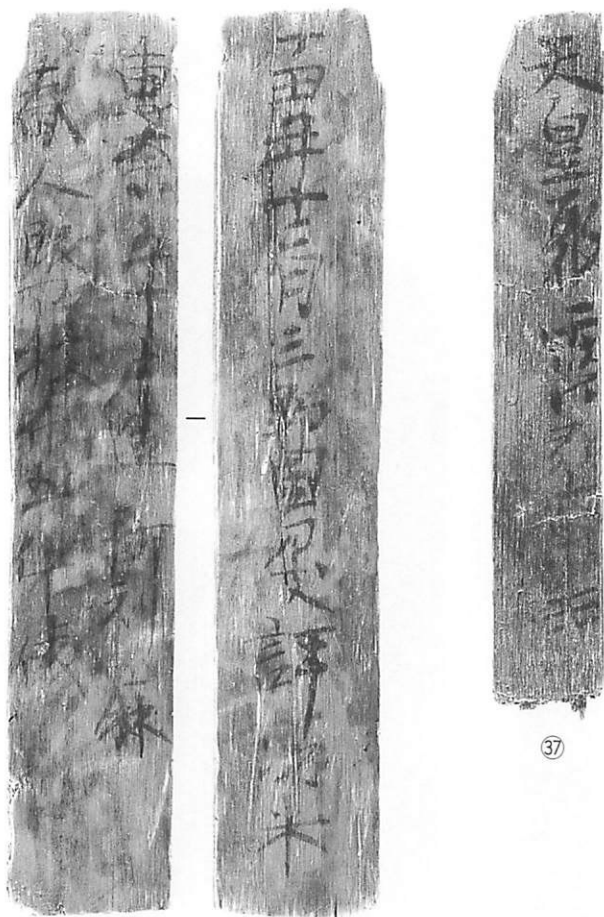 天皇聚露弘寅
㊲
丁丑年十二月三野国刀支評次米
恵奈五十戸造阿利麻
舂人服部枚布五斗俵